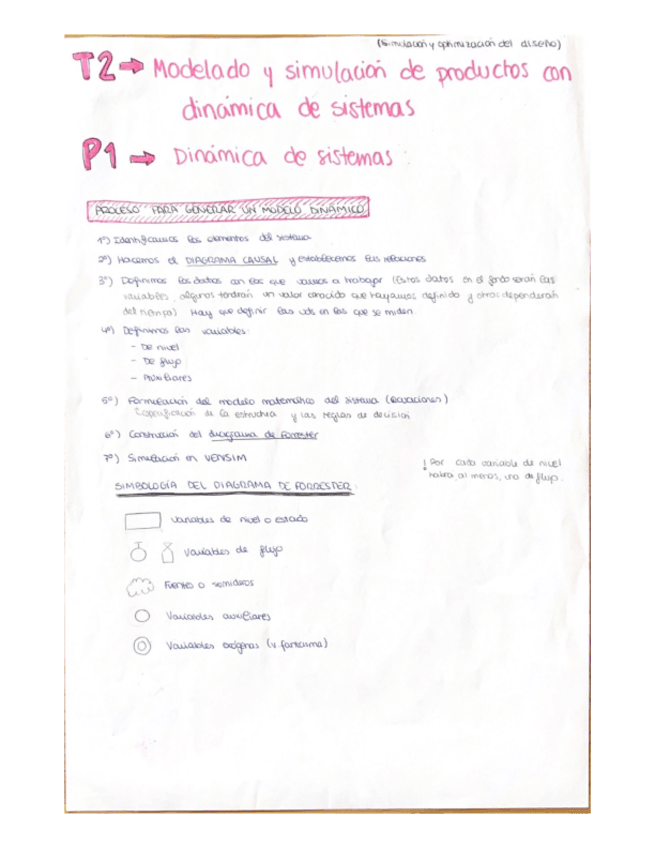 (Simulación y optimización del diseño)
T2→ Modelado y simulación de productos con
dinámica de sistemas
P1→ Dinámica de sistemas
PROCESO PARA GENERAR UN MODELO DINÁMICO
1º) Identificamos los elementos del sistema
2º) Hacemos el DIAGRAMA CAUSAL y establecemos las relaciones
3º) Definimos los datos con los que vamos a trabajar (Estos datos en el fondo serán las
variables, algunos tendrán un valor conocido que hayamos definido y otros dependerán
del tiempo) Hay que definir las uds en las que se miden
4º) Definimos las variables:
- De nivel
- De flujo
- Auxiliares
5º) Formulación del modelo matemático del sistema (ecuaciones)
Especificación de la estructura y las reglas de decisión
6º) Construcción del diagrama de Forrester
7º) Simulación en VENSIM
! Por cada variable de nivel
habrá al menos, una de flujo.
SIMBOLOGÍA DEL DIAGRAMA DE FORRESTER:
Variables de nivel o estado
Variables de flujo
Fuentes o sumideros
Variables auxiliares
Variables exógenas (v. fantasma)